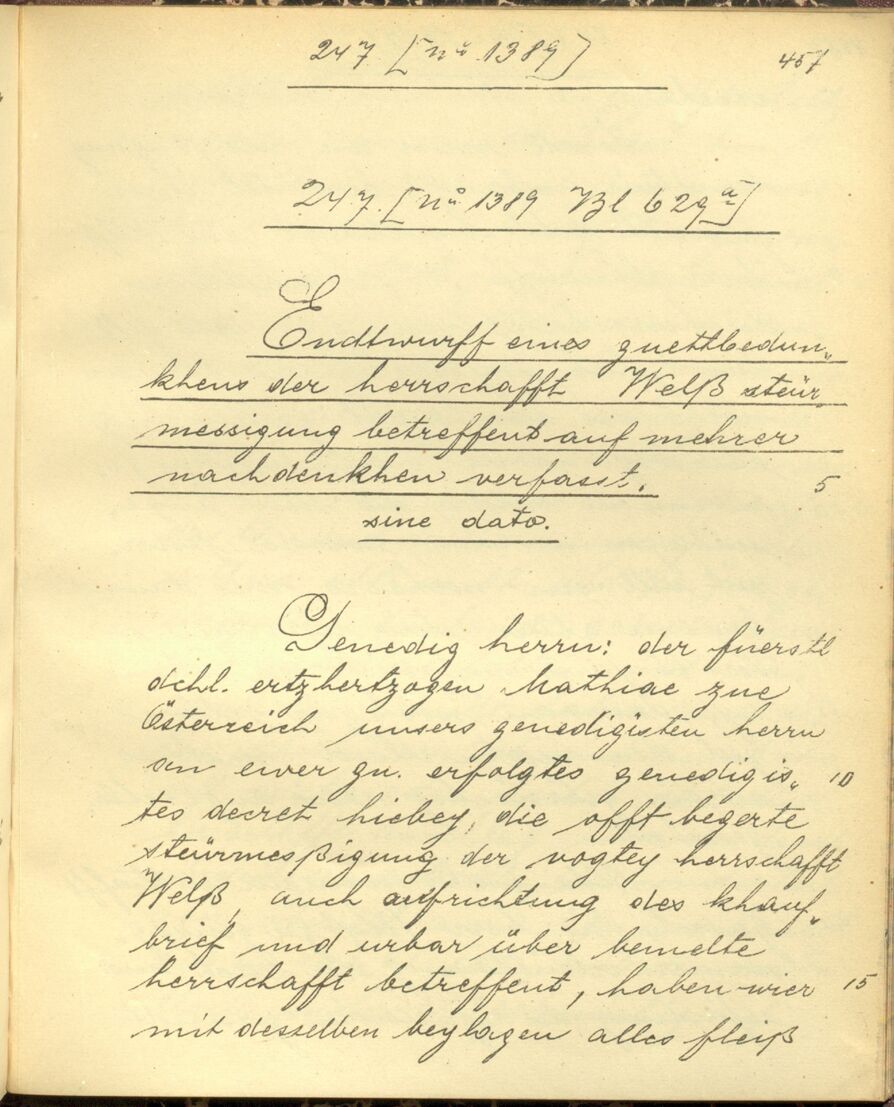 247 [nº 1389]
457
247. [nº 1389 Bl 629 a]
Endtwurff eines guettbedun„
khens der herrschafft Welß steür
messigung betreffent auf mehrer
nachdenkhen verfasst.
5
sine dato.
Genedig herrn: der füerstl
dchl. ertzhertzogen Mathiae zue
Österreich unsers genedigisten herrn
an ewer gn. erfolgtes genedigis„
10
tes decret hiebey, die offt begerte
steürmesßigung der vogtey herrschafft
Welß, auch aufrichtung des khauf„
brief und urbar über bemelte
herrschafft betreffent, haben wier
15
mit desselben beylagen alles fleiß